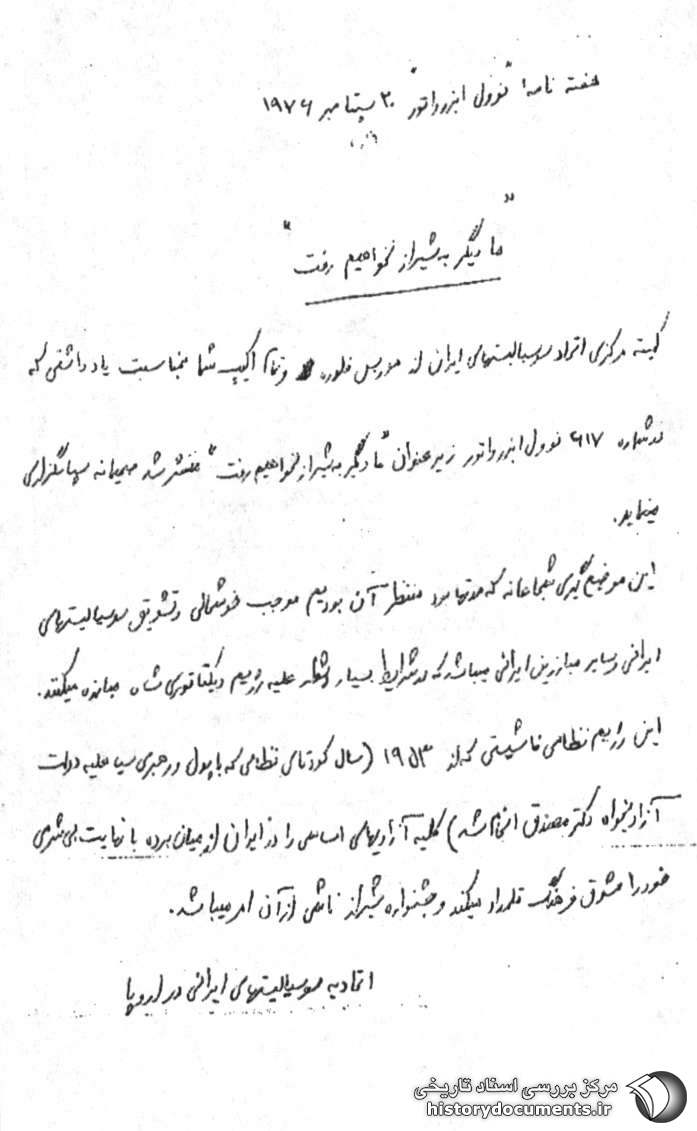 هفته نامه "نوول ابزرواتور" ۲۰ سپتامبر ۱۹۷۶
"ما دیگر به شیراز نخواهیم رفت"
کمیته مرکزی اتحاد سوسیالیستهای ایران از موریس فلوره و تمام اکیپ شما بمناسبت یادداشتی که
در شماره ۶۱۷ نوول ابزرواتور زیر عنوان "ما دیگر به شیراز نخواهیم رفت" منتشر شد صمیمانه سپاسگزاری
مینماید.
این موضع گیری شجاعانه که مدتها بود منتظر آن بودیم موجب خوشحالی و تشویق سوسیالیستهای
ایرانی و سایر مبارزین ایرانی میباشد که در شرایط بسیار دشوار علیه رژیم دیکتاتوری شاه مبارزه میکنند.
این رژیم نظامی فاشیستی که از ۱۹۵۳ (سال کودتای نظامی که با پول و رهبری سیا علیه دولت
آزادیخواه دکتر مصدق انجام شد) کلیه آزادیهای اساسی را در ایران از میان برده با نهایت بی شرمی
خود را مشوق فرهنگ قلمداد میکند و جشنواره شیراز ناشی از آن امر میباشد.
اتحادیه سوسیالیستهای ایرانی در اروپا
مرکز بررسی اسناد تاریخی
historydocuments.ir